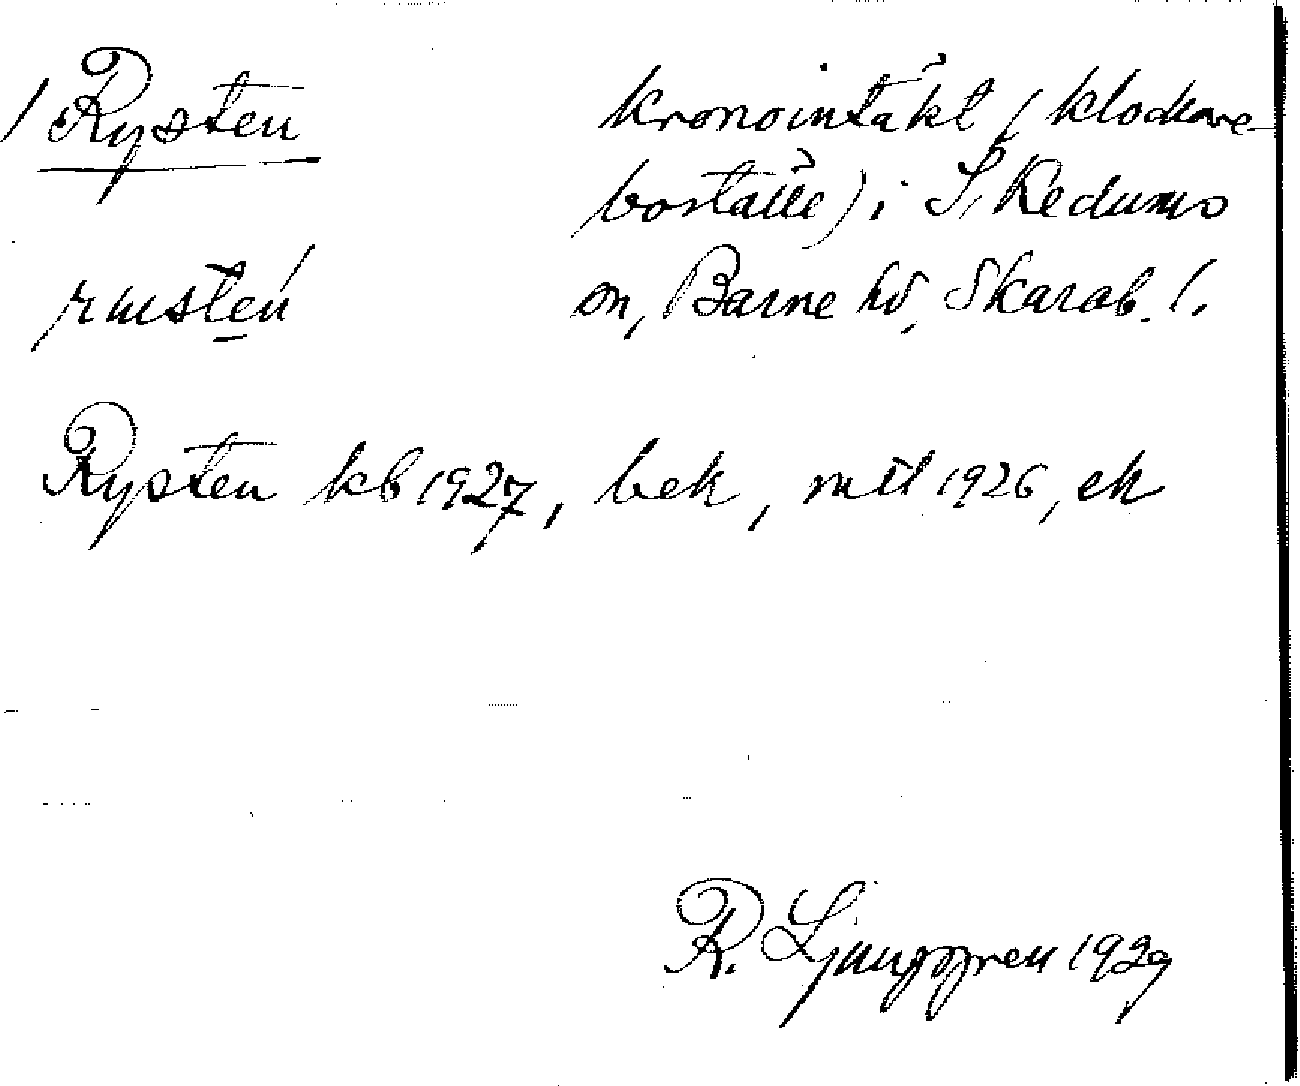 / Rysten
kronointäkt (klockare-
boställe) i S. Kedums
rusten
sn, Barne hd, Skarab. l.
Rysten kb 1927, bek, mtl 1926, ek
R. Ljunggren 1929